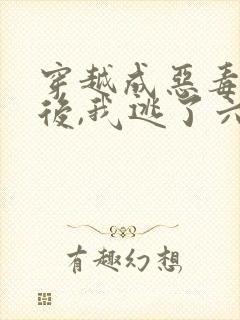 穿越成惡毒
後,我逃了六
有趣幻想